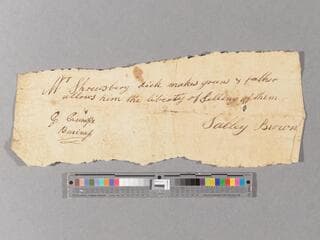 Mr Shrewsbury dick makes yours & father
allows him the liberty of selling of them
Salley Brown
G